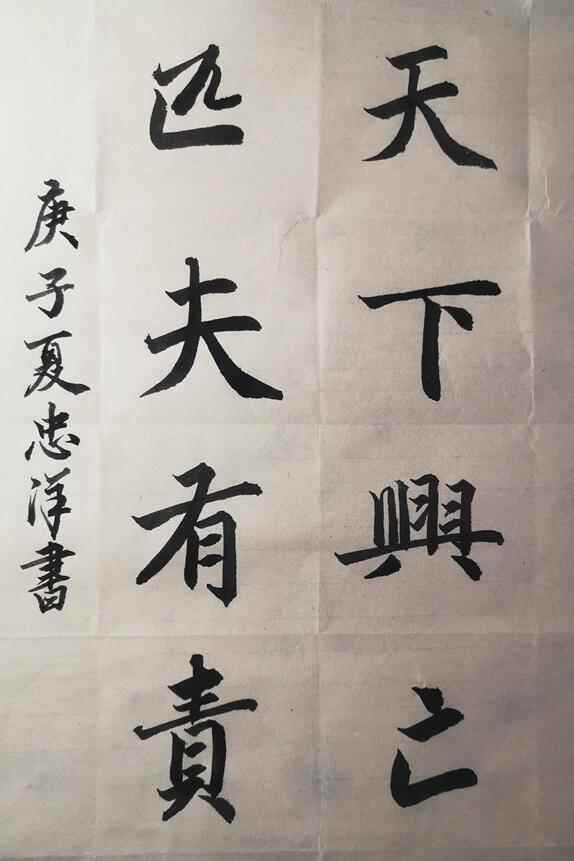 天下興亡
匹夫有責
庚子夏忠洋書